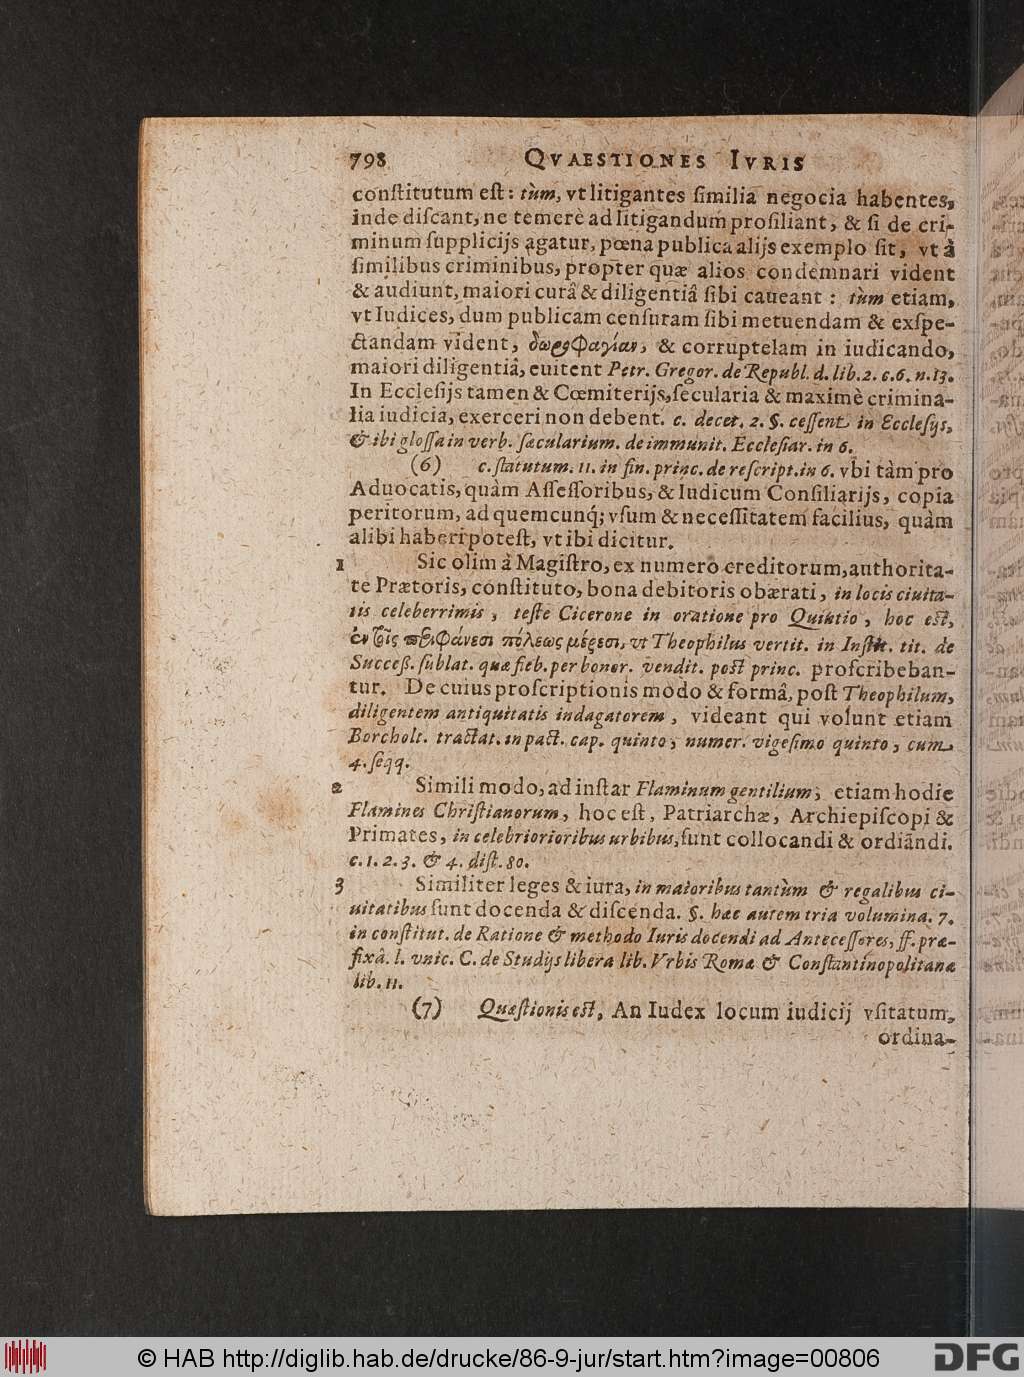 798 QVAESTIONES IVRIS
conſtitutum eſt: tùm, vt litigantes ſimilia negocia habentes,
inde diſcant, ne temerè ad litigandum proſiliant, & ſi de cri-
minum ſupplicijs agatur, pœna publica alijs exemplo ſit, vt à
ſimilibus criminibus, propter quæ alios condemnari vident
& audiunt, maiori curâ & diligentiâ ſibi caueant: tùm etiam,
vt Iudices, dum publicam cenſuram ſibi metuendam & exſpe-
ctandam vident, δωροφαγίαν, & corruptelam in iudicando,
maiori diligentiâ, euitent Petr. Gregor. de Republ. d. lib. 2. c. 6. n. 13.
In Eccleſijs tamen & Cœmiterijs, ſecularia & maximè crimina-
lia iudicia, exerceri non debent. c. decet. 2. §. ceſſent in Eccleſijs,
& ibi gloſſa in verb. ſæcularium. de immunit. Eccleſiar. in 6.
(6) c. ſtatutum. 11. in fin. princ. de reſcript. in 6. vbi tàm pro
Aduocatis, quàm Aſſeſſoribus, & Iudicum Conſiliarijs, copia
peritorum, ad quemcunq́; vſum & neceſſitatem facilius, quàm
alibi haberi poteſt, vt ibi dicitur.
1 Sic olim à Magiſtro, ex numero creditorum, authorita-
te Prætoris, conſtituto, bona debitoris obærati, in locis ciuita-
tis celeberrimis, teſte Cicerone in oratione pro Quintio, hoc eſt,
ἐν τοῖς ἐπιφάνεσι πόλεως μέρεσι, vt Theophilus vertit. in Inſtit. tit. de
Succeſſ. ſublat. quæ fieb. per bonor. vendit. poſt princ. proſcribeban-
tur. De cuius proſcriptionis modo & formâ, poſt Theophilum,
diligentem antiquitatis indagatorem, videant qui volunt etiam
Borcholt. tractat. in pact. cap. quinto, numer. vigeſimo quinto, cum
4. ſeqq.
2 Simili modo, ad inſtar Flaminum gentilium, etiam hodie
Flamines Chriſtianorum, hoc eſt, Patriarchæ, Archiepiſcopi &
Primates, in celebriorioribus urbibus, ſunt collocandi & ordiãndi.
c. 1. 2. 3. & 4. diſt. 80.
3 Similiter leges & iura, in maioribus tantùm & regalibus ci-
uitatibus ſunt docenda & diſcenda. §. hæc autem tria volumina. 7.
in conſtitut. de Ratione & methodo Iuris docendi ad Anteceſſores, ff. præ-
fixâ. l. vnic. C. de Studijs libera lib. Vrbis Romæ & Conſtantinopolitanæ
lib. 11.
(7) Quæſtionis eſt, An Iudex locum iudicij vſitatum,
ordina-
© HAB http://diglib.hab.de/drucke/86-9-jur/start.htm?image=00806
DFG